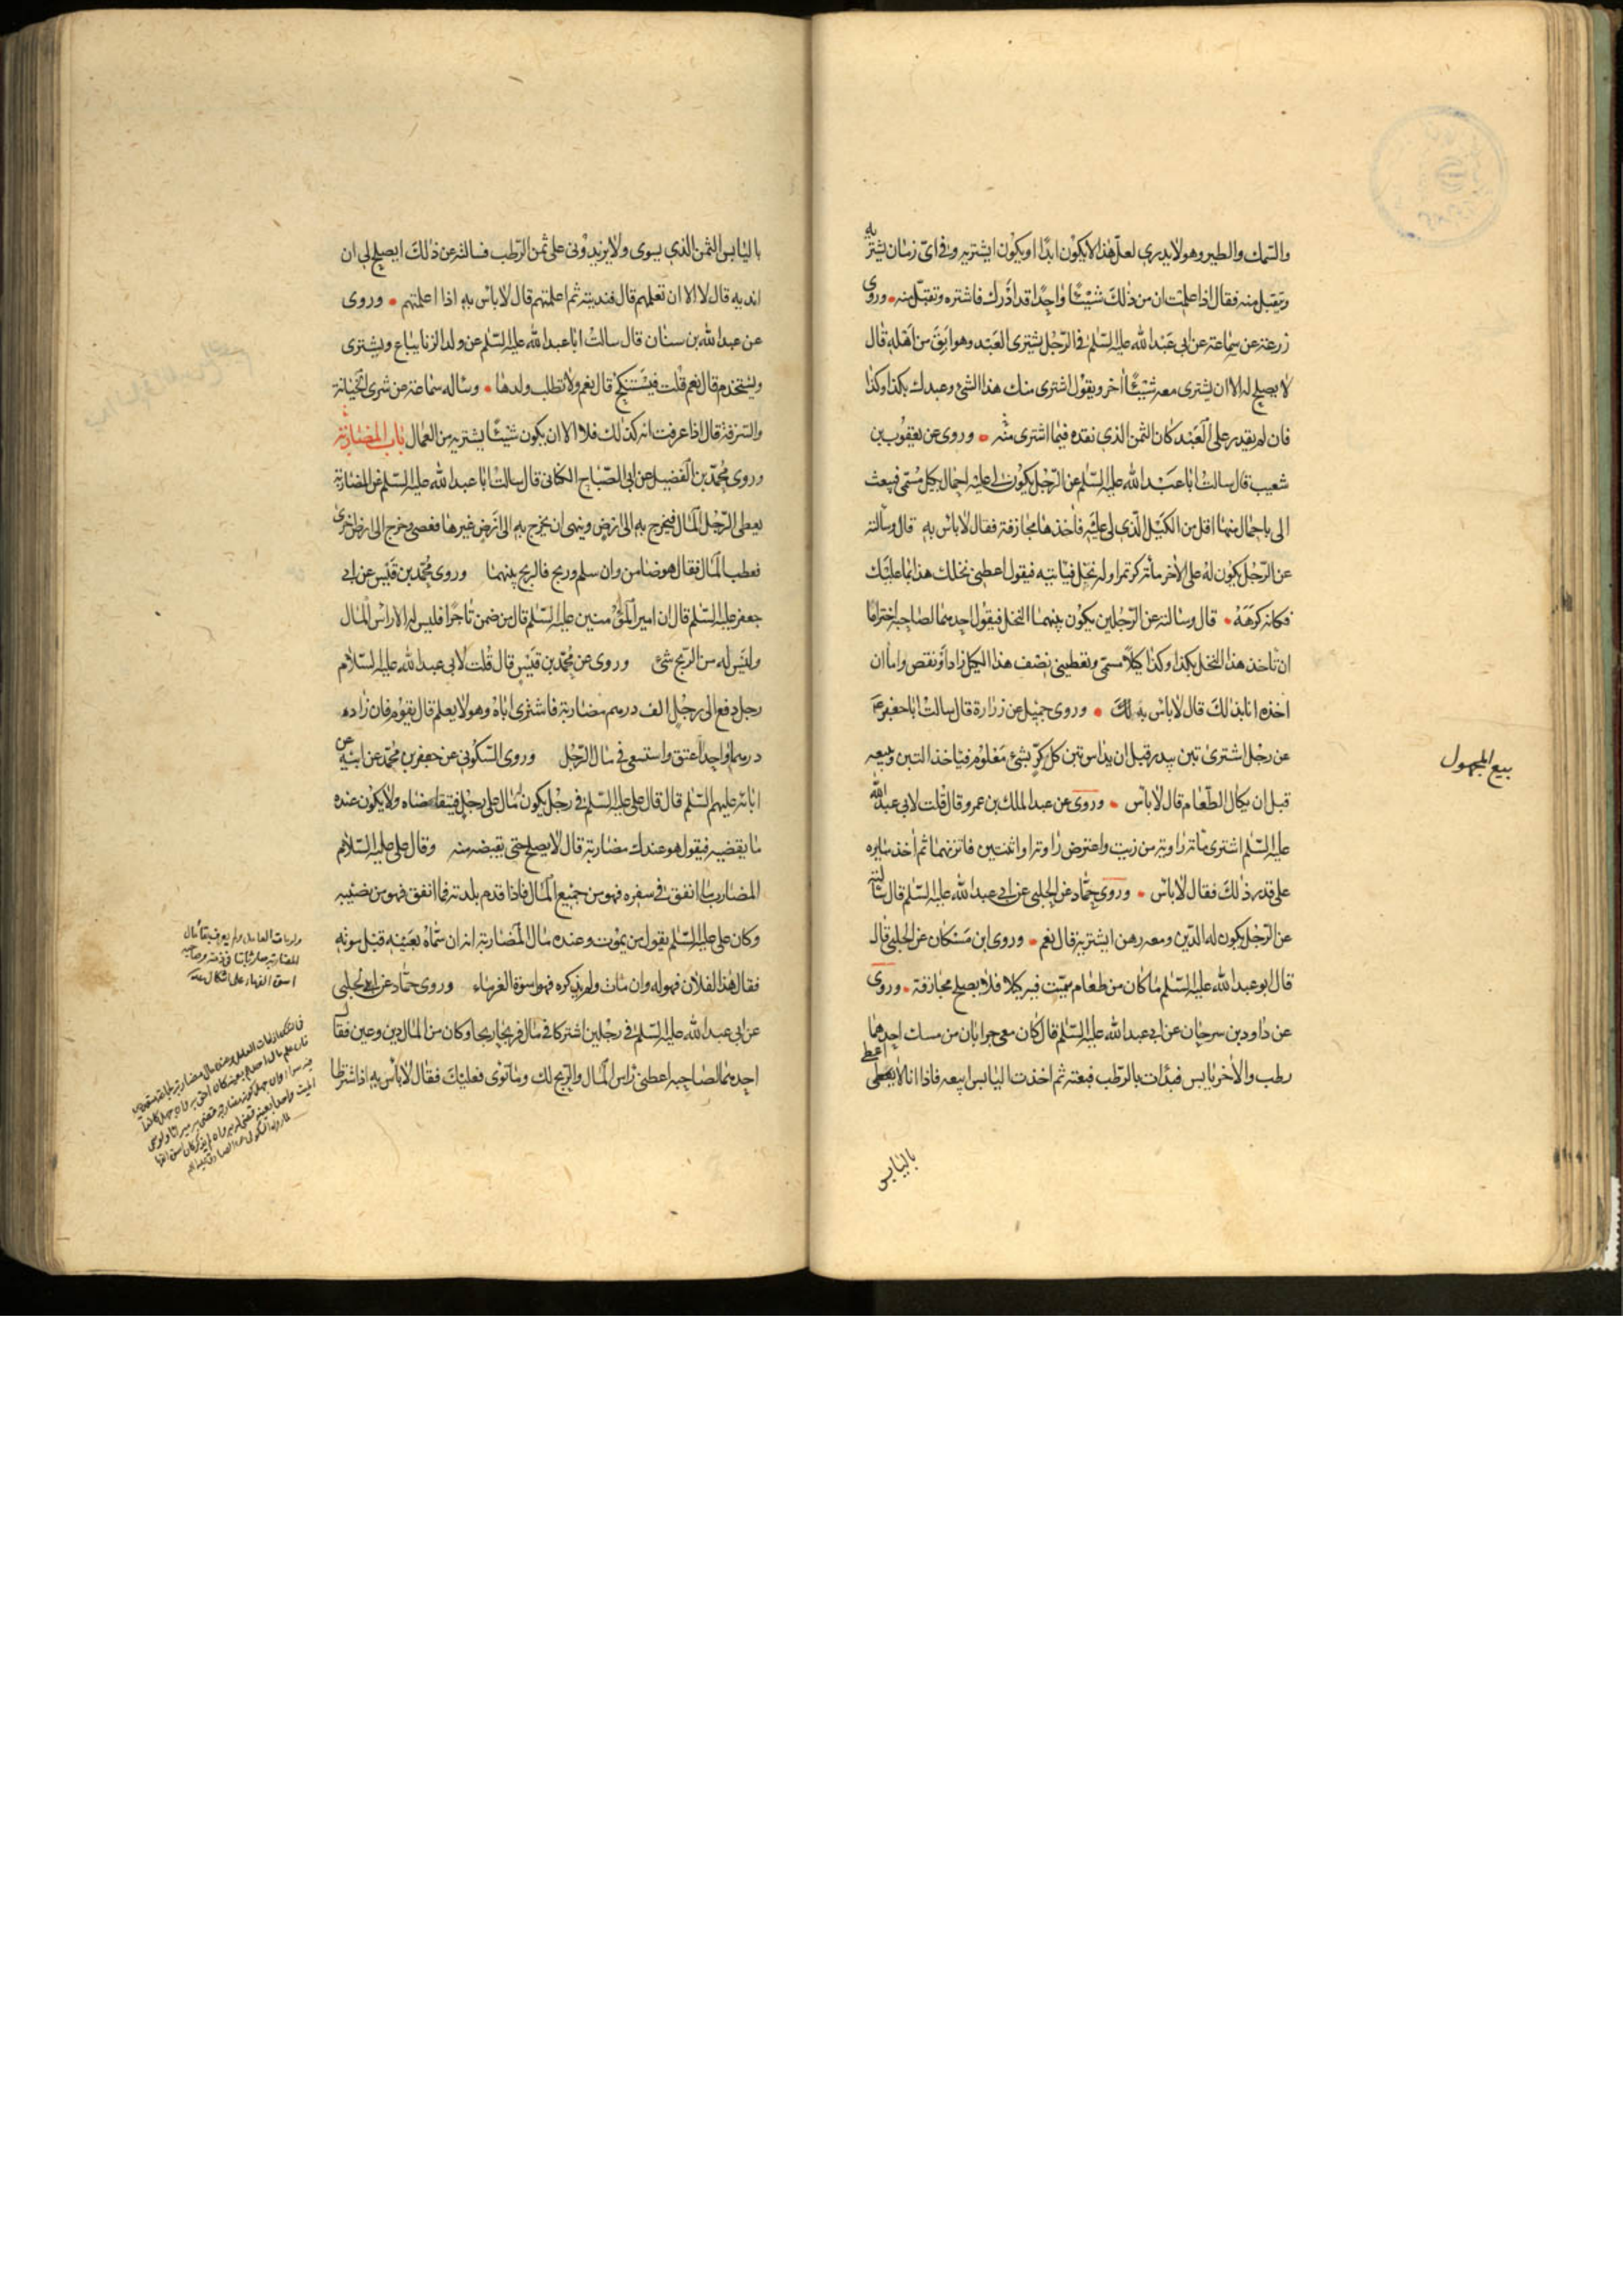 والسمك والطير وهو لا يدري لعل هذا لا يكون ابدا او يكون ايشتريه وفي اى زمان يشتريه
ويتقبل منه فقال اذا علمت ان من ذلك شيئا واحدا قد ادرك فاشتره وتقبل منه وروى
زرعة عن سماعة عن ابي عبد الله عليه السلم في الرجل يشترى العبد وهو ابق من اهله قال
لا يصلح له الا ان يشترى معه شيئا اخر ويقول اشترى منك هذا الشئ وعبدك بكذا وكذا
فان لم يقدر على العبد كان الثمن الذي نقده فيما اشترى منه وروى عن يعقوب بن
شعيب قال سالت ابا عبد الله عليه السلم عن الرجل يكون لي عليه احمال بكيل مسمى فيبعث
الى باحمال منها اقل من الكيل الذي لي عليه فاخذها مجازفة فقال لا باس به قال وسألته
عن الرجل يكون له على الاخر مائة كر تمرا وله نخل فياتيه فيقول اعطني نخلك هذا بما عليك
فكانه كرهه قال وسالته عن الرجلين يكون بينهما النخل فيقول احدهما لصاحبه اختر اما
ان تاخذ هذا النخل بكذا وكذا كيلا مسمى وتعطيني نصف هذا الكيل زاد او نقص واما ان
اخذه انا بذلك قال لا باس به لك وروى جميل عن زرارة قال سالت ابا جعفر ع
عن رجل اشترى تبن بيدر قبل ان يداس تبن كل كر بشئ معلوم فياخذ التبن ويبيعه
قبل ان يكال الطعام قال لا باس وروى عن عبد الملك بن عمرو قال قلت لابي عبد الله
عليه السلم اشترى مائة راوية من زيت واعترض راوية او اثنتين فاتزنهما ثم اخذ سايره
على قدر ذلك فقال لا باس وروى حماد عن الحلبي عن ابي عبد الله عليه السلم قال سالته
عن الرجل يكون له الدين ومعه رهن ايشتريه قال نعم وروى ابن مسكان عن الحلبي قال
قال ابو عبد الله عليه السلم ما كان من طعام سميت فيه كيلا فلا يصلح مجازفة وروى
عن داود بن سرحان عن ابي عبد الله عليه السلم قال كان معي جرابان من مسك احدهما
رطب والاخر يابس فبدات بالرطب فبعته ثم اخذت اليابس ابيعه فاذا انا لا اعطى
باليابس
بيع المجهول
باليابس الثمن الذي يسوى ولا يزيدوني على ثمن الرطب فسالته عن ذلك ايصلح لي ان
انديه قال لا الا ان تعلمهم قال فنديته ثم اعلمتهم قال لا باس به اذا اعلمتهم وروى
عن عبد الله بن سنان قال سالت ابا عبد الله عليه السلم عن ولد الزنا يباع ويشترى
ويستخدم قال نعم قلت فيستنكح قال نعم ولا تطلب ولدها وساله سماعة عن شرى الخيانة
والسرقة قال اذا عرفت انه كذلك فلا الا ان يكون شيئا يشتريه من العمال باب المضاربة
وروى محمد بن الفضيل عن ابي الصباح الكناني قال سالت ابا عبد الله عليه السلم عن المضاربة
يعطى الرجل المال فيخرج به الى ارض وينهى ان يخرج به الى ارض غيرها فعصى وخرج الى ارض اخرى
فعطب المال فقال هو ضامن وان سلم وربح فالربح بينهما وروى محمد بن قيس عن ابي
جعفر عليه السلم قال ان امير المؤمنين عليه السلم قال من ضمن تاجرا فليس له الا راس المال
وليس له من الربح شئ وروى عن محمد بن قيس قال قلت لابي عبد الله عليه السلام
رجل دفع الى رجل الف درهم مضاربة فاشترى اباه وهو لا يعلم قال يقوم فان زاده
درهما واحدا اعتق واستسعى في مال الرجل وروى السكوني عن جعفر بن محمد عن ابيه عن
ابائه عليهم السلم قال قال علي عليه السلم في رجل يكون له مال على رجل فيتقاضاه ولا يكون عنده
ما يقضيه فيقول هو عندك مضاربة قال لا يصلح حتى يقبضه منه وقال علي عليه السلام
المضارب ما انفق في سفره فهو من جميع المال فاذا قدم بلدته فما انفق فهو من نصيبه
وكان علي عليه السلم يقول من يموت وعنده مال المضاربة انه ان سماه بعينه قبل موته
فقال هذا لفلان فهو له وان مات ولم يذكره فهو اسوة الغرماء وروى حماد عن الحلبي
عن ابي عبد الله عليه السلم في رجلين اشتركا في مال فربحا ربحا وكان من المال دين وعين فقال
احدهما لصاحبه اعطني راس المال والربح لك وما توى فعليك فقال لا باس به اذا اشترطا